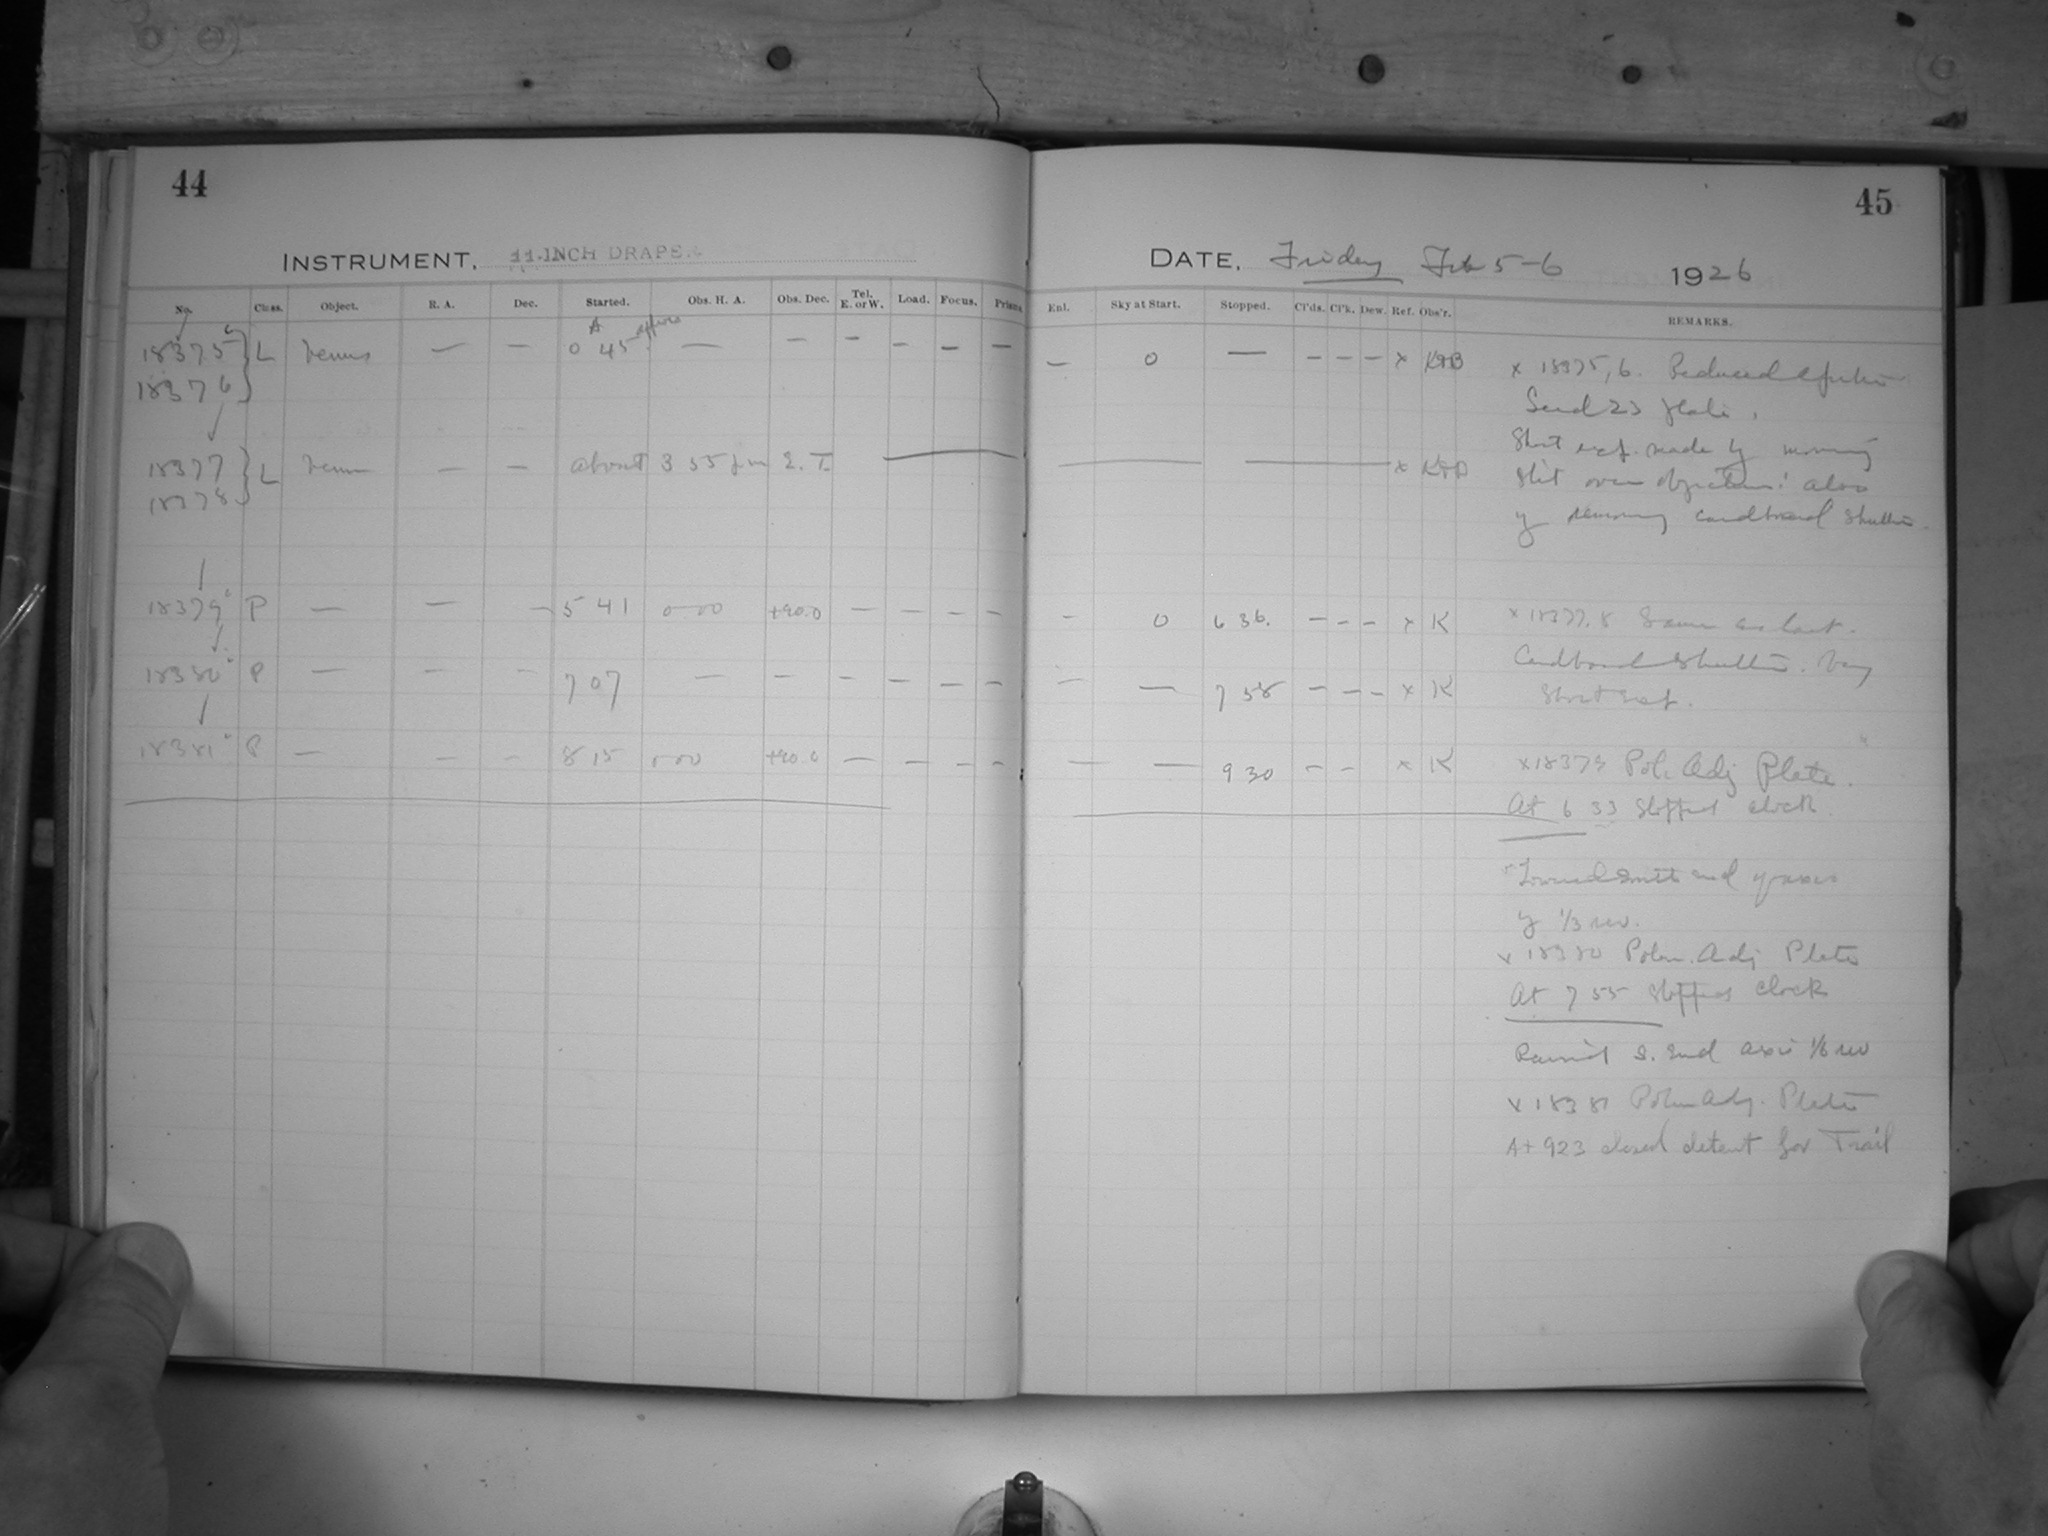 44
INSTRUMENT. 11-INCH DRAPER
No. Class. Object. R. A. Dec. Started. Obs. H. A. Obs. Dec. Tel. E. or W. Load. Focus. Prism
18375 } L Venus — — A 0 45 approx — — — — — —
18376
18377 } L Venus — — about 3 55 pm E. T.
18378
18379 P — — — 5 41 0 00 +90.0 — — — —
18380 P — — — 7 07 — — — — — —
18381 P — — — 8 15 0 00 +90.0 — — — —
45
DATE. Friday Feb 5-6 1926
Enl. Sky at Start. Stopped. Cl'ds. Cl'k. Dew. Ref. Obs'r. REMARKS.
— 0 — — — — x K&B
x K&B
— 0 6 36. — — — x K
— — 7 58 — — — x K
— — 9 30 — — x K
x 18375, 6. Reduced aperture
Seed 23 plate.
Short exp. made by moving
slit over objective: also
by removing cardboard shutter.
x 18377, 8 Same as last.
Cardboard shutter. Very
short exp.
x 18379 Polar Adj Plate.
At 6 33 stopped clock
Lowered south end of axis
by 1/3 rev.
x 18380 Polar. Adj Plate
At 7 55 stopped clock
Raised S. end axis 1/6 rev
x 18381 Polar Adj. Plate
At 923 closed detent for Trail